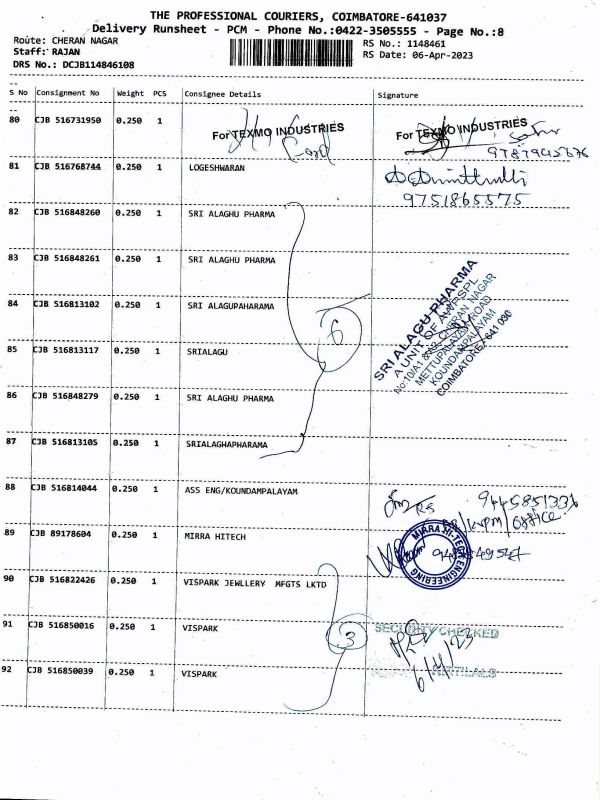 THE PROFESSIONAL COURIERS, COIMBATORE-641037
Delivery Runsheet - PCM - Phone No.:0422-3505555 - Page No.:8
Route: CHERAN NAGAR
RS No.: 1148461
Staff: RAJAN
RS Date: 06-Apr-2023
DRS No.: DCJB114846108
S No Consignment No Weight PCS Consignee Details Signature
80 CJB 516731950 0.250 1 For TEXMO INDUSTRIES For TEXMO INDUSTRIES
81 CJB 516768744 0.250 1 LOGESHWARAN
9751865575
82 CJB 516848260 0.250 1 SRI ALAGHU PHARMA
83 CJB 516848261 0.250 1 SRI ALAGHU PHARMA
84 CJB 516813102 0.250 1 SRI ALAGUPAHARAMA
6
SRI ALAGU PHARMA
A UNIT OF AWPSPL
CHERAN NAGAR
METTUPALAYAM ROAD
KOUNDAMPALAYAM
COIMBATORE - 641 030
85 CJB 516813117 0.250 1 SRIALAGU
86 CJB 516848279 0.250 1 SRI ALAGHU PHARMA
87 CJB 516813105 0.250 1 SRIALAGHAPHARAMA
88 CJB 516814044 0.250 1 ASS ENG/KOUNDAMPALAYAM
9445851336
office
89 CJB 89178604 0.250 1 MIRRA HITECH
MIRRA HI-TEK ENGINEERING
90 CJB 516822426 0.250 1 VISPARK JEWLLERY MFGTS LKTD
91 CJB 516850016 0.250 1 VISPARK
3
SECURITY CHECKED
6/4/23
92 CJB 516850039 0.250 1 VISPARK